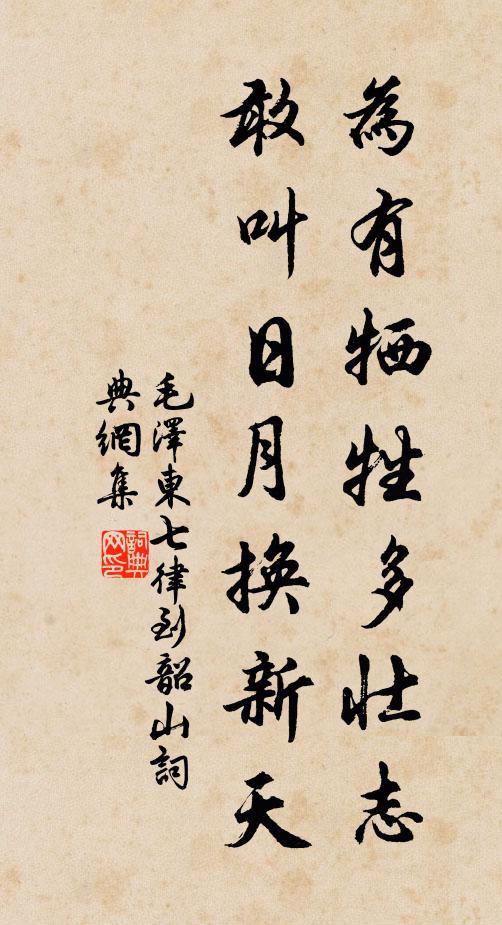 為有牺牲多壮志
敢叫日月換新天
毛澤東七律到韶山詞
典網集
詞典
网印